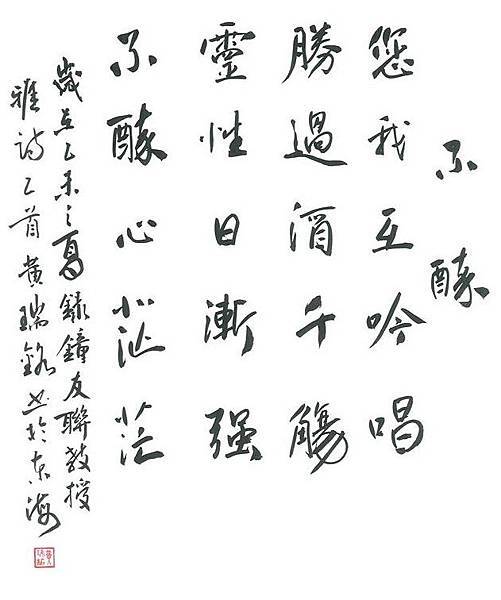 不
您我互吟唱
勝過酒千觴
靈性日漸强
不心茫茫
歲在乙未之夏錄鐘友聯教授
雅詩乙首黃瑞銘書於東海